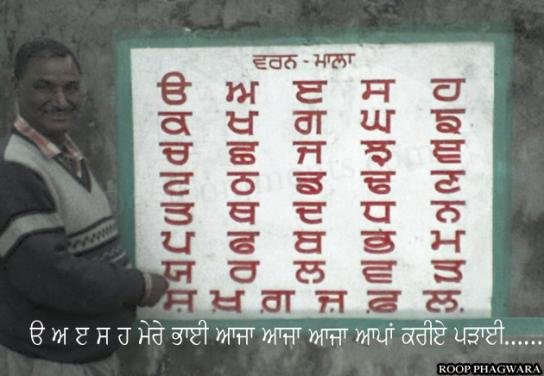 ਵਰਨ - ਮਾਲਾ
ੳ ਅ ੲ ਸ ਹ
ਕ ਖ ਗ ਘ ਙ
ਚ ਛ ਜ ਝ ਞ
ਟ ਠ ਡ ਢ ਣ
ਤ ਥ ਦ ਧ ਨ
ਪ ਫ ਬ ਭ ਮ
ਯ ਰ ਲ ਵ ੜ
ਸ਼ ਖ਼ ਗ਼ ਜ਼ ਫ਼ ਲ਼
ੳ ਅ ੲ ਸ ਹ ਮੇਰੇ ਭਾਈ ਆਜਾ ਆਜਾ ਆਜਾ ਆਪਾਂ ਕਰੀਏ ਪੜਾਈ......
ROOP PHAGWARA